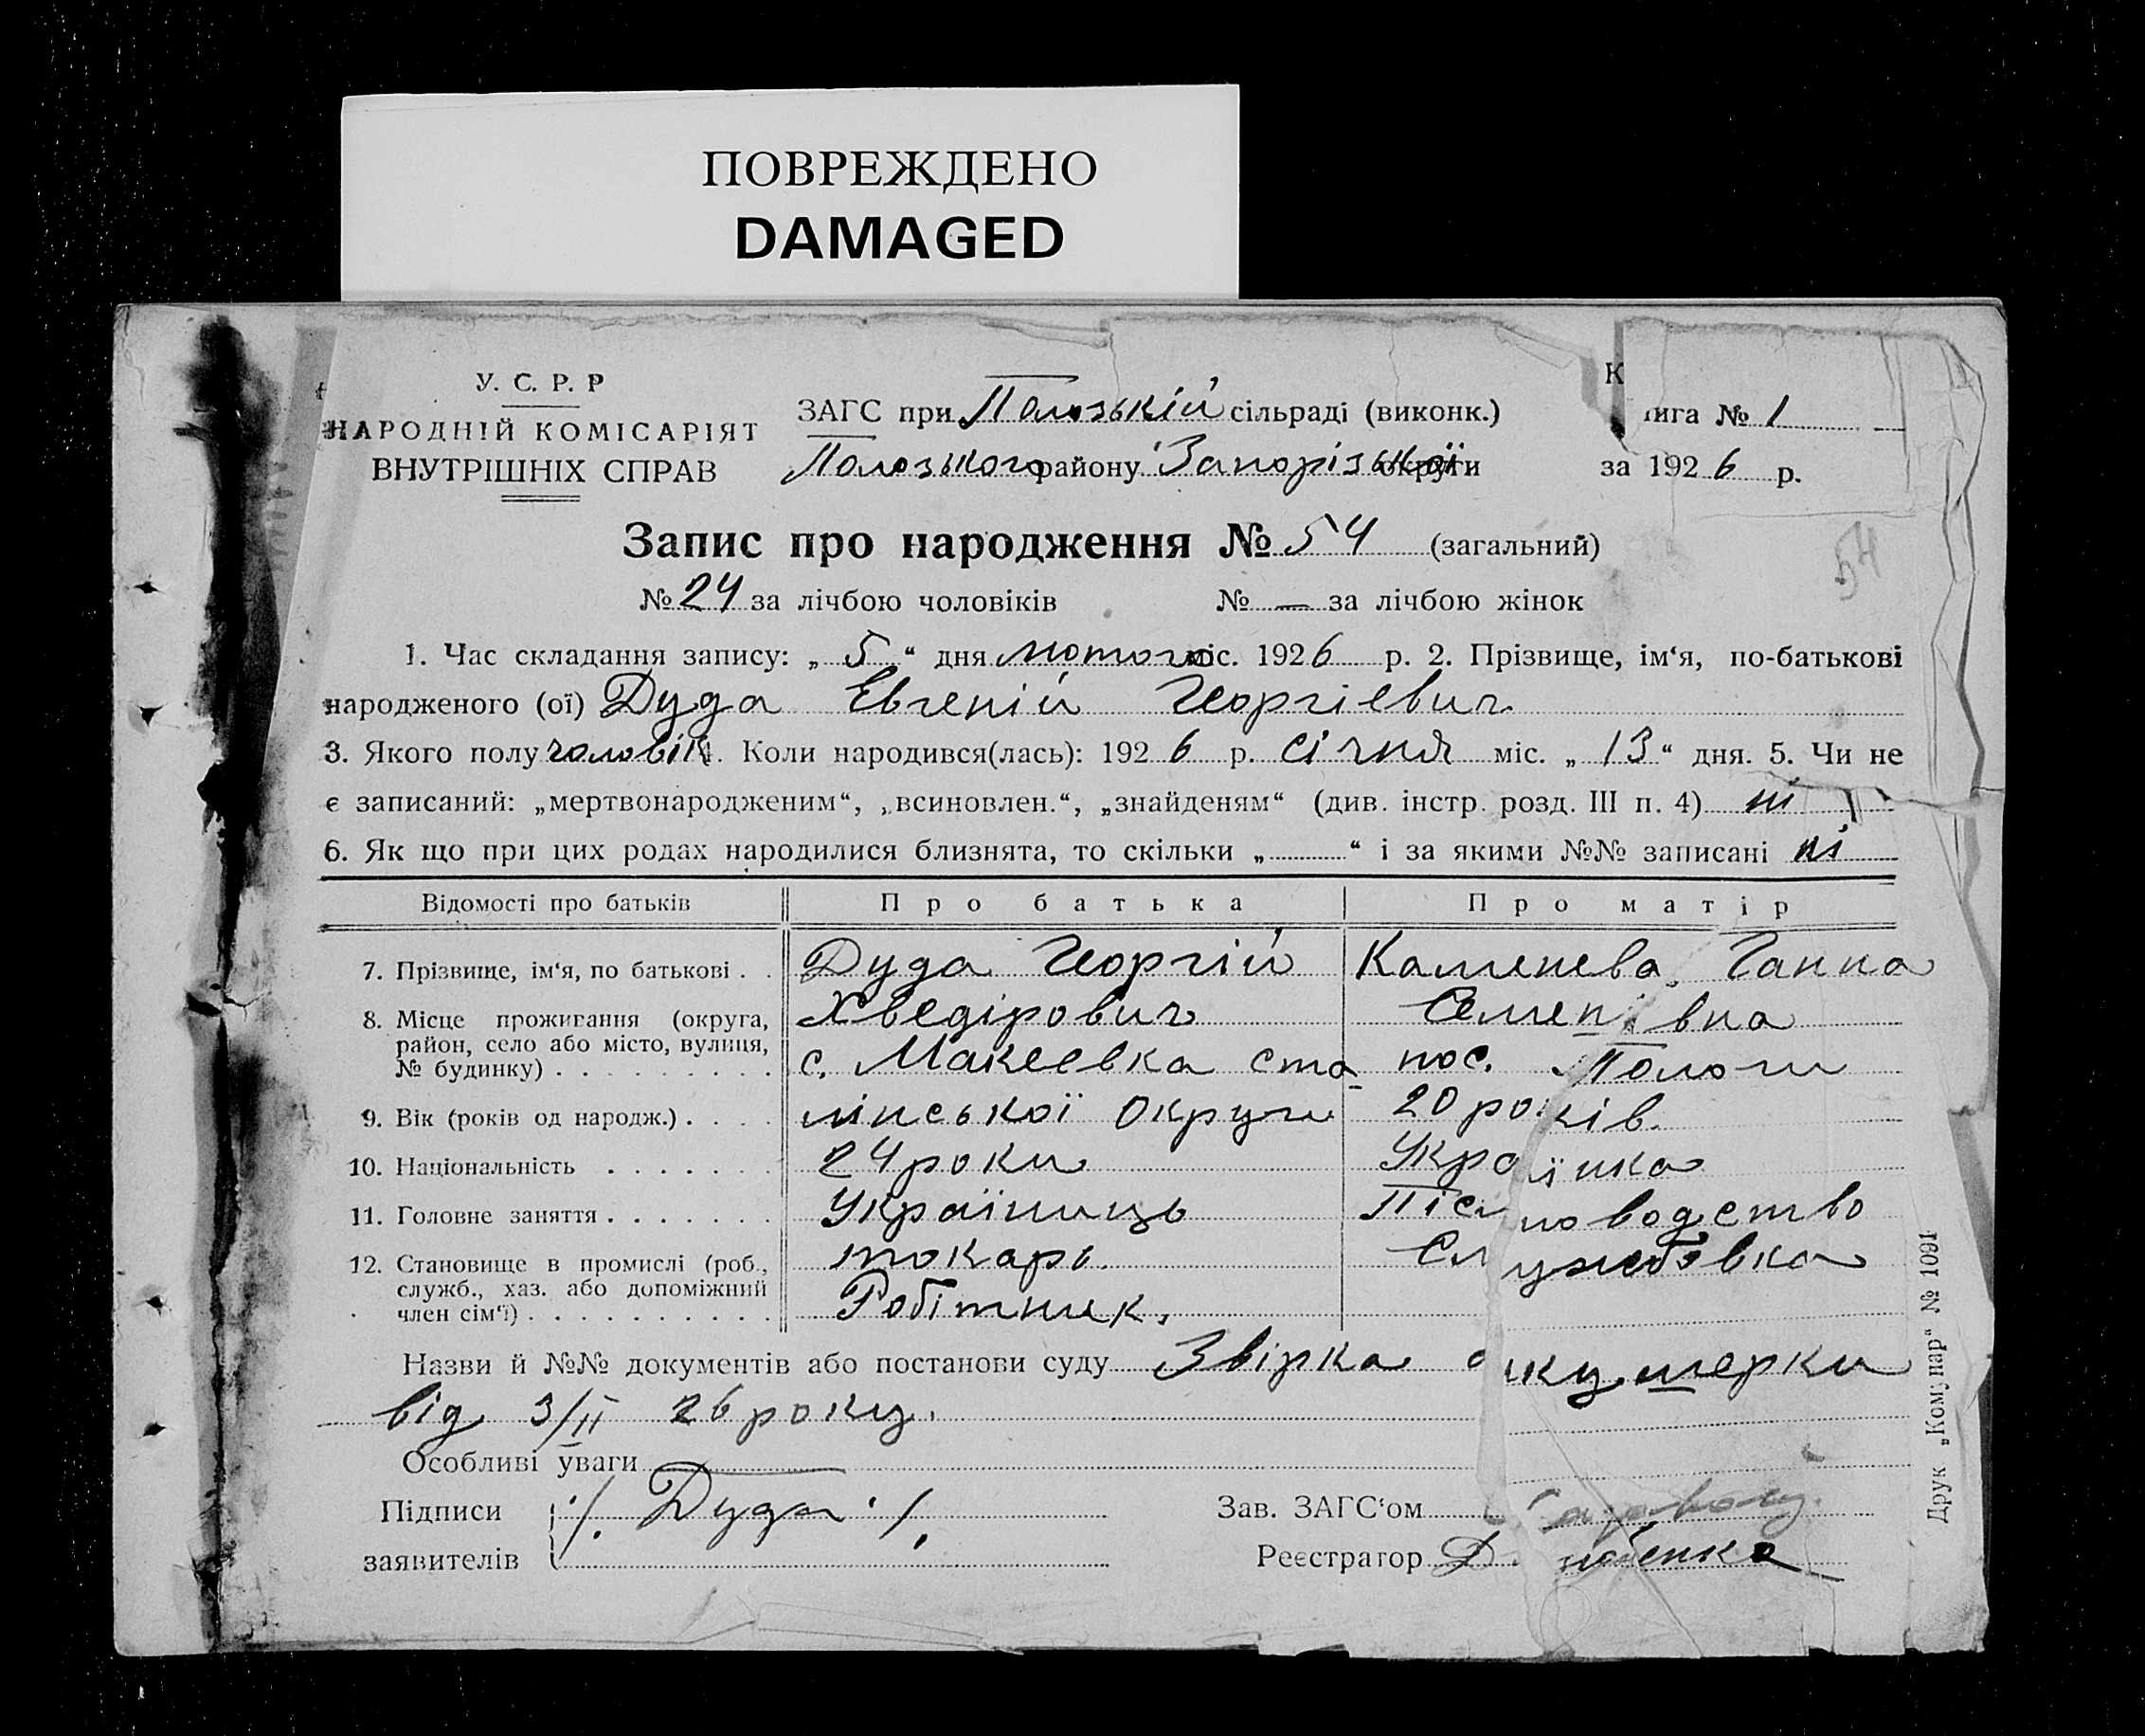 ПОВРЕЖДЕНО
DAMAGED
У. С. Р. Р
НАРОДНІЙ КОМІСАРІЯТ
ВНУТРІШНІХ СПРАВ
ЗАГС при Пологзькій сільраді (виконк.)
Пологзького району Запорізької округи
Книга № 1
за 1926 р.
Запис про народження № 54 (загальний)
54
№ 24 за лічбою чоловіків № — за лічбою жінок
1. Час складання запису: „ 5 “ дня лютого міс. 1926 р. 2. Прізвище, ім‘я, по-батькові
народженого (ої) Дуда Евгеній Георгіевич
3. Якого полу чоловік 4. Коли народився(лась): 1926 р. січня міс. „ 13 “ дня. 5. Чи не
є записаний: „мертвонародженим“, „всиновлен.“, „знайденям“ (див. інстр. розд. III п. 4) ні
6. Як що при цих родах народилися близнята, то скільки „ “ і за якими №№ записані ні
Відомості про батьків Про батька Про матір
7. Прізвище, ім‘я, по батькові . . Дуда Георгій Каменева Ганна
8. Місце проживання (округа, Хведірович Семенівна
район, село або місто, вулиця,
№ будинку) . . . . . . . . . с. Макеевка Ста- пос. Пологи
9. Вік (років од народж.) . . . . лінської Округи 20 років.
10. Національність . . . . . . . 24 роки Українка
11. Головне заняття . . . . . . . Українець
12. Становище в промислі (роб., токарь. Службовка
служб., хаз. або допоміжний
член сім‘ї) . . . . . . . . . . Робітник.
Назви й №№ документів або постанови суду Звірка акушерки
від 3/II 26 року.
Особливі уваги
Підписи ./. Дуда ./. Зав. ЗАГС‘ом
заявителів Реєстратор
Друк „Комунар“ № 1091